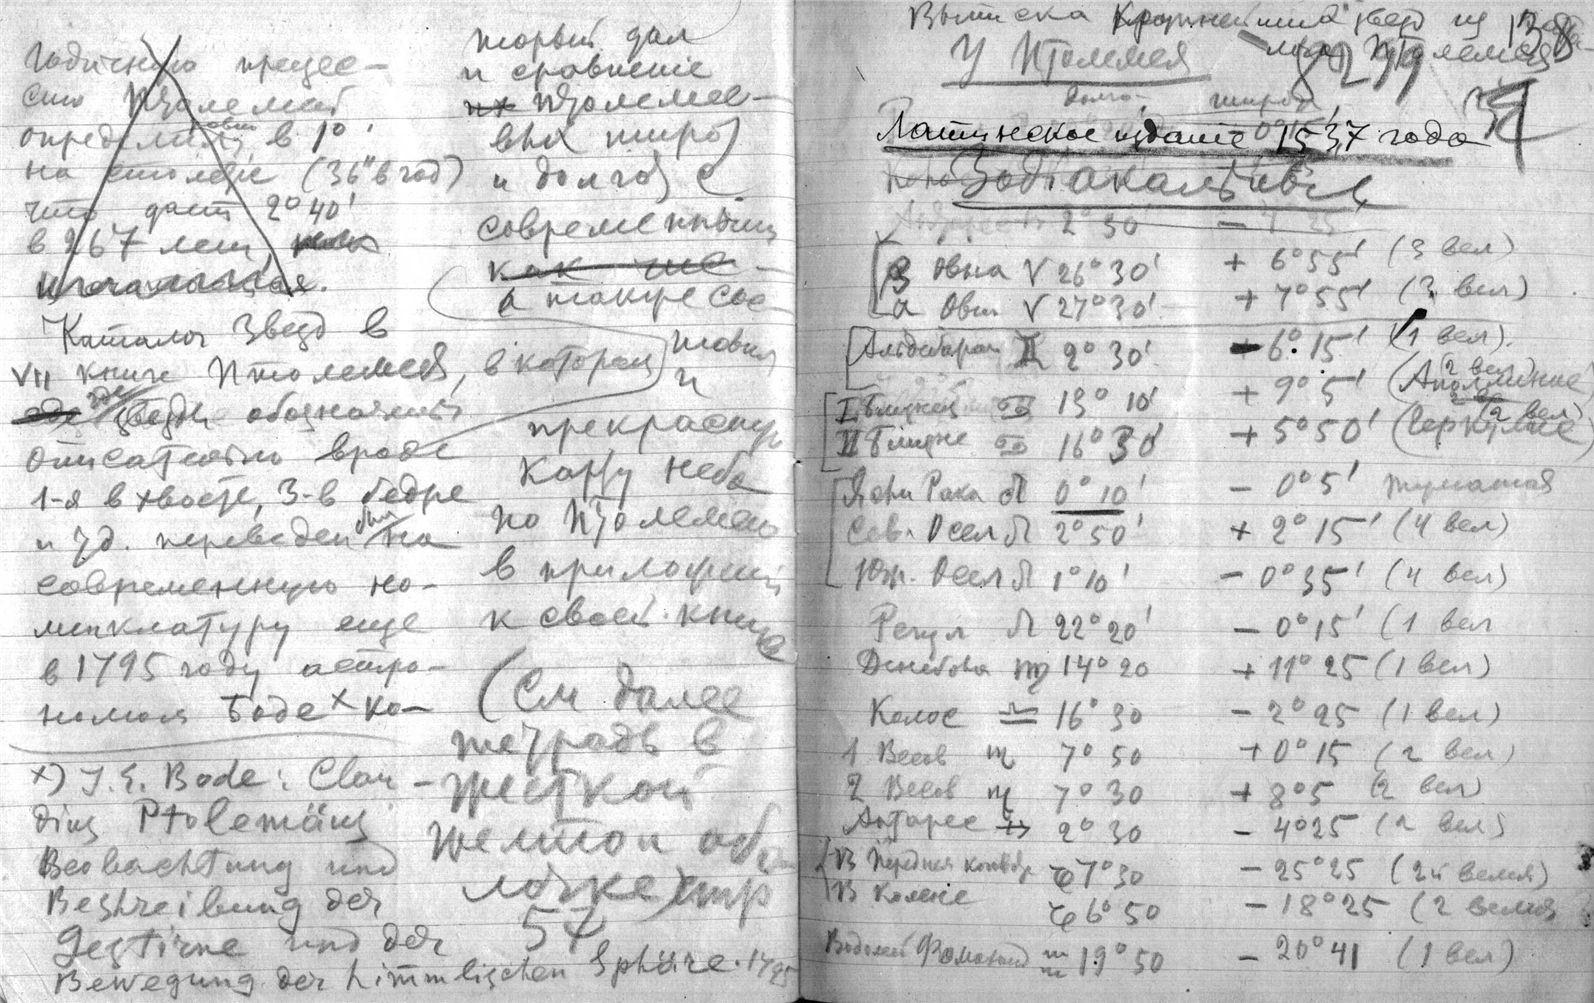 годичную прецес-
сию Птолемей
определил
в 1°
на столетие (36" в год)
что дает 2°40'
в 267 лет,
Каталог звезд в
VII книге Птолемея, в котором
где звезды обозначены
описательно вроде
1-я в хвосте, 3-в бедре
и т.д. переведен был на
современную но-
менклатуру еще
в 1795 году астро-
номом Боде x ко-
x) J. E. Bode: Clau-
dius Ptolemäus
Beobachtung und
Beshreibung der
Gestirne und der
Bewegung der himmlischen Sphäre. 1795
торый дал
и сравнение
Птолемее-
вых широт
и долгот с
современными
как же
а также сос
тавил
и
прекрасную
карту неба
по Птолемею
в приложении
к своей книге
(См далее
тетрадь в
жесткой
желтой обо
лочке) стр
57
Выписка Крупнейших звезд из
У Птолемея
138
долго- широта
Латинское издание 1537 года
Зодіакальныя
2°30'
β Овна ♈ 26°30' + 6°55' (3 вел)
α Овна ♈ 27°30' + 7°55' (3 вел)
Альдебаран ♊ 2°30' - 6°15' (1 вел).
I Близнец ♋ 13°10' + 9°5' (Аполлиние 2 вел)
II Близне ♋ 16°30' + 5°50' (Геркулис 2 вел)
Ясли Рака ♌ 0°10' - 0°5' туманная
Сев. Осел ♌ 2°50' + 2°15' (4 вел)
Юж. Осел ♌ 1°10' - 0°35' (4 вел)
Регул ♌ 22°20' - 0°15' (1 вел
Денебола ♍ 14°20 + 11°25 (1 вел)
Колос ♎ 16°30 - 2°25 (1 вел)
1 Весов ♏ 7°50 + 0°15 (2 вел)
2 Весов ♏ 7°30 + 8°5 (2 вел)
Антарес ♐ 2°30 - 4°25 (2 вел)
В передняя 7°30 - 25°25 (2й велич)
В Колене 6°50 - 18°25 (2 велич
Водолей Фомальг ♒ 19°50 - 20°41 (1 вел)